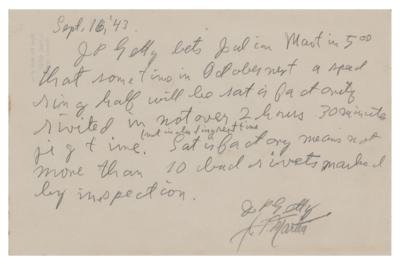 Sept. 16, '43
J P Getty bets Julian Martin 5⁰⁰
that sometime in October next a spad
ring half will be satisfactorily
riveted in not over 2 hours 30 minute
(not including rest time
jig time. Satisfactory means not
more than 10 bad rivets marked
by inspection.
J P Getty
J. Martin